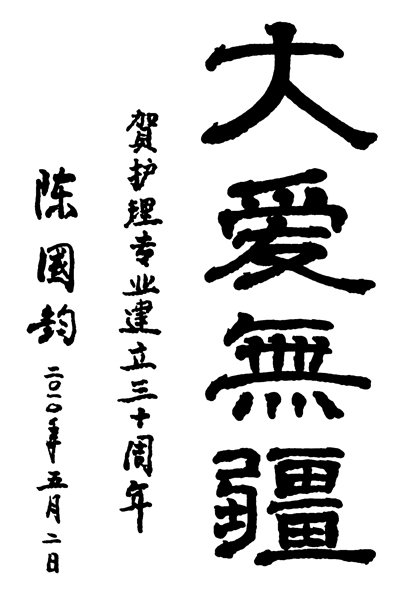 大爱無疆
賀护理专业建立三十周年
陈國鈞
二〇一〇年五月二日